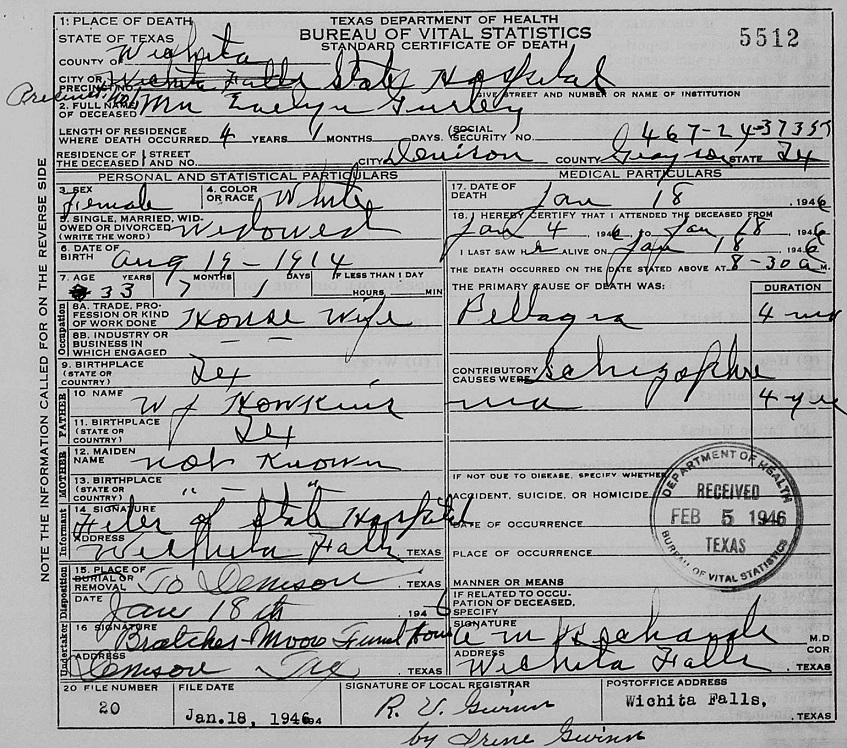 TEXAS DEPARTMENT OF HEALTH
BUREAU OF VITAL STATISTICS
STANDARD CERTIFICATE OF DEATH
5512
1: PLACE OF DEATH
STATE OF TEXAS
COUNTY OF Wichita
CITY OR PRECINCT NO. Wichita Falls State Hospital
GIVE STREET AND NUMBER OR NAME OF INSTITUTION
2. FULL NAME OF DECEASED Mrs Evelyn Gurley
LENGTH OF RESIDENCE WHERE DEATH OCCURRED 4 YEARS 1 MONTHS DAYS. (SOCIAL SECURITY NO. 467-24-3735
RESIDENCE OF THE DECEASED STREET AND NO. CITY Denison COUNTY Grayson STATE Tex
NOTE THE INFORMATION CALLED FOR ON THE REVERSE SIDE
PERSONAL AND STATISTICAL PARTICULARS
3. SEX Female
4. COLOR OR RACE White
5. SINGLE, MARRIED, WIDOWED OR DIVORCED (WRITE THE WORD) Widowed
6. DATE OF BIRTH Aug 19 - 1914
7. AGE YEARS MONTHS DAYS IF LESS THAN 1 DAY
33 7 1 HOURS MIN
Occupation
8A. TRADE, PROFESSION OR KIND OF WORK DONE House Wife
8B. INDUSTRY OR BUSINESS IN WHICH ENGAGED — —
9. BIRTHPLACE (STATE OR COUNTRY) Tex
FATHER
10 NAME W J Howkins
11. BIRTHPLACE (STATE OR COUNTRY) Tex
MOTHER
12. MAIDEN NAME not Known
13. BIRTHPLACE (STATE OR COUNTRY) " — " —
Informant
14 SIGNATURE Files of State Hospital
ADDRESS Wichita Falls TEXAS
Disposition
15. PLACE OF BURIAL OR REMOVAL To Denison . TEXAS
DATE Jan 18 th . 1946
Undertaker
16 SIGNATURE Bratcher-Moore Funeral Home
ADDRESS Denison Tex . TEXAS
MEDICAL PARTICULARS
17. DATE OF DEATH Jan 18 . 1946
18. I HEREBY CERTIFY THAT I ATTENDED THE DECEASED FROM
Jan 4 . 1946 TO Jan 18 . 1946
I LAST SAW H ALIVE ON Jan 18 . 1946
THE DEATH OCCURRED ON THE DATE STATED ABOVE AT 8-30 a M.
THE PRIMARY CAUSE OF DEATH WAS: DURATION
Pellagra 4 mo
CONTRIBUTORY CAUSES WERE Schizophre
nia 4 yr
IF NOT DUE TO DISEASE, SPECIFY WHETHER
ACCIDENT, SUICIDE, OR HOMICIDE
DATE OF OCCURRENCE
PLACE OF OCCURRENCE
MANNER OR MEANS
IF RELATED TO OCCUPATION OF DECEASED, SPECIFY
DEPARTMENT OF HEALTH
RECEIVED
FEB 5 1946
TEXAS
BUREAU OF VITAL STATISTICS
SIGNATURE M.D
COR.
ADDRESS Wichita Falls . TEXAS
20 FILE NUMBER
20
FILE DATE
Jan.18, 1946
194
SIGNATURE OF LOCAL REGISTRAR
R. V. Gwinn
by Irene Gwinn
POSTOFFICE ADDRESS
Wichita Falls,
. TEXAS